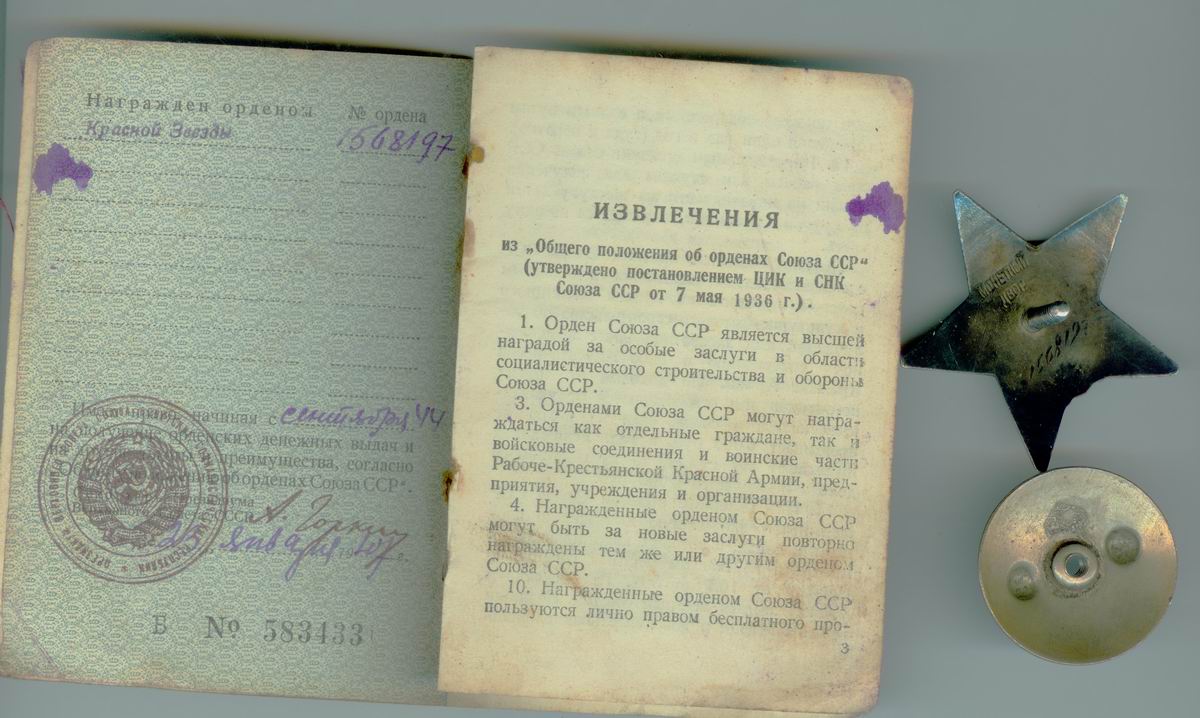 Награжден орденом № ордена
Красной Звезды 1568197
начиная с сентября 44
на получение орденских денежных выдач и
преимущества, согласно
об орденах Союза ССР".
СССР А. Горкин
января
Б № 583433
ИЗВЛЕЧЕНИЯ
из „Общего положения об орденах Союза ССР"
(утверждено постановлением ЦИК и СНК
Союза ССР от 7 мая 1936 г.).
1. Орден Союза ССР является высшей
наградой за особые заслуги в области
социалистического строительства и обороны
Союза ССР.
3. Орденами Союза ССР могут награ-
ждаться как отдельные граждане, так и
войсковые соединения и воинские части
Рабоче-Крестьянской Красной Армии, пред-
приятия, учреждения и организации.
4. Награжденные орденом Союза ССР
могут быть за новые заслуги повторно
награждены тем же или другим орденом
Союза ССР.
10. Награжденные орденом Союза ССР
пользуются лично правом бесплатного про-
3
МОНЕТНЫЙ
ДВОР